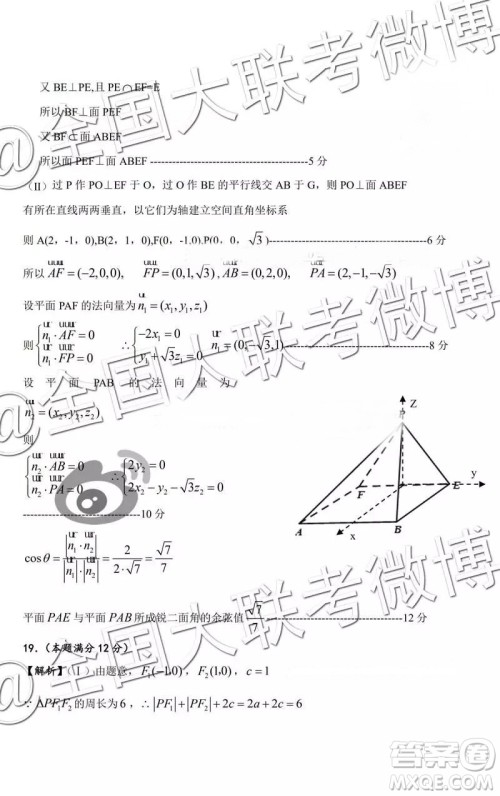 又 BE⊥PE,且 PE∩EF=E
所以 BF⊥面 PEF
又 BF⊂面 ABEF
所以面 PEF⊥面 ABEF ------5 分
(II) 过 P 作 PO⊥EF 于 O，过 O 作 BE 的平行线交 AB 于 G，则 PO⊥面 ABEF
有所在直线两两垂直，以它们为轴建立空间直角坐标系
则 A(2，-1，0),B(2，1，0),F(0，-1,0),P(0，0，√3)------6 分
所以 AF=(-2,0,0), FP=(0,1,√3), AB=(0,2,0), PA=(2,-1,-√3)
设平面 PAF 的法向量为 n₁=(x₁,y₁,z₁)
则 {n₁·AF=0 n₁·FP=0 ∴{-2x₁=0 y₁+√3z₁=0 n₁=(0,-√3,1)------8 分
设 平面 PAB 的 法 向 量 为
n₂=(x₂,y₂,z₂)
则
{n₂·AB=0 n₂·PA=0 ∴{2y₂=0 2x₂-y₂-√3z₂=0
------10 分
cosθ=|n₁·n₂|/|n₁|·|n₂|=2/2·√7=√7/7
平面 PAE 与平面 PAB 所成锐二面角的余弦值 √7/7 ------12 分
19.（本题满分 12 分）
【解析】（1）由题意，F₁(-1,0)，F₂(1,0)，c=1
∵ΔPF₁F₂的周长为 6，∴|PF₁|+|PF₂|+2c=2a+2c=6
P
Z
F
E
y
A
B
x
@全国大联考微博
@全国大联考微博
@全国大联考微博
答案圈
MXQE.COM